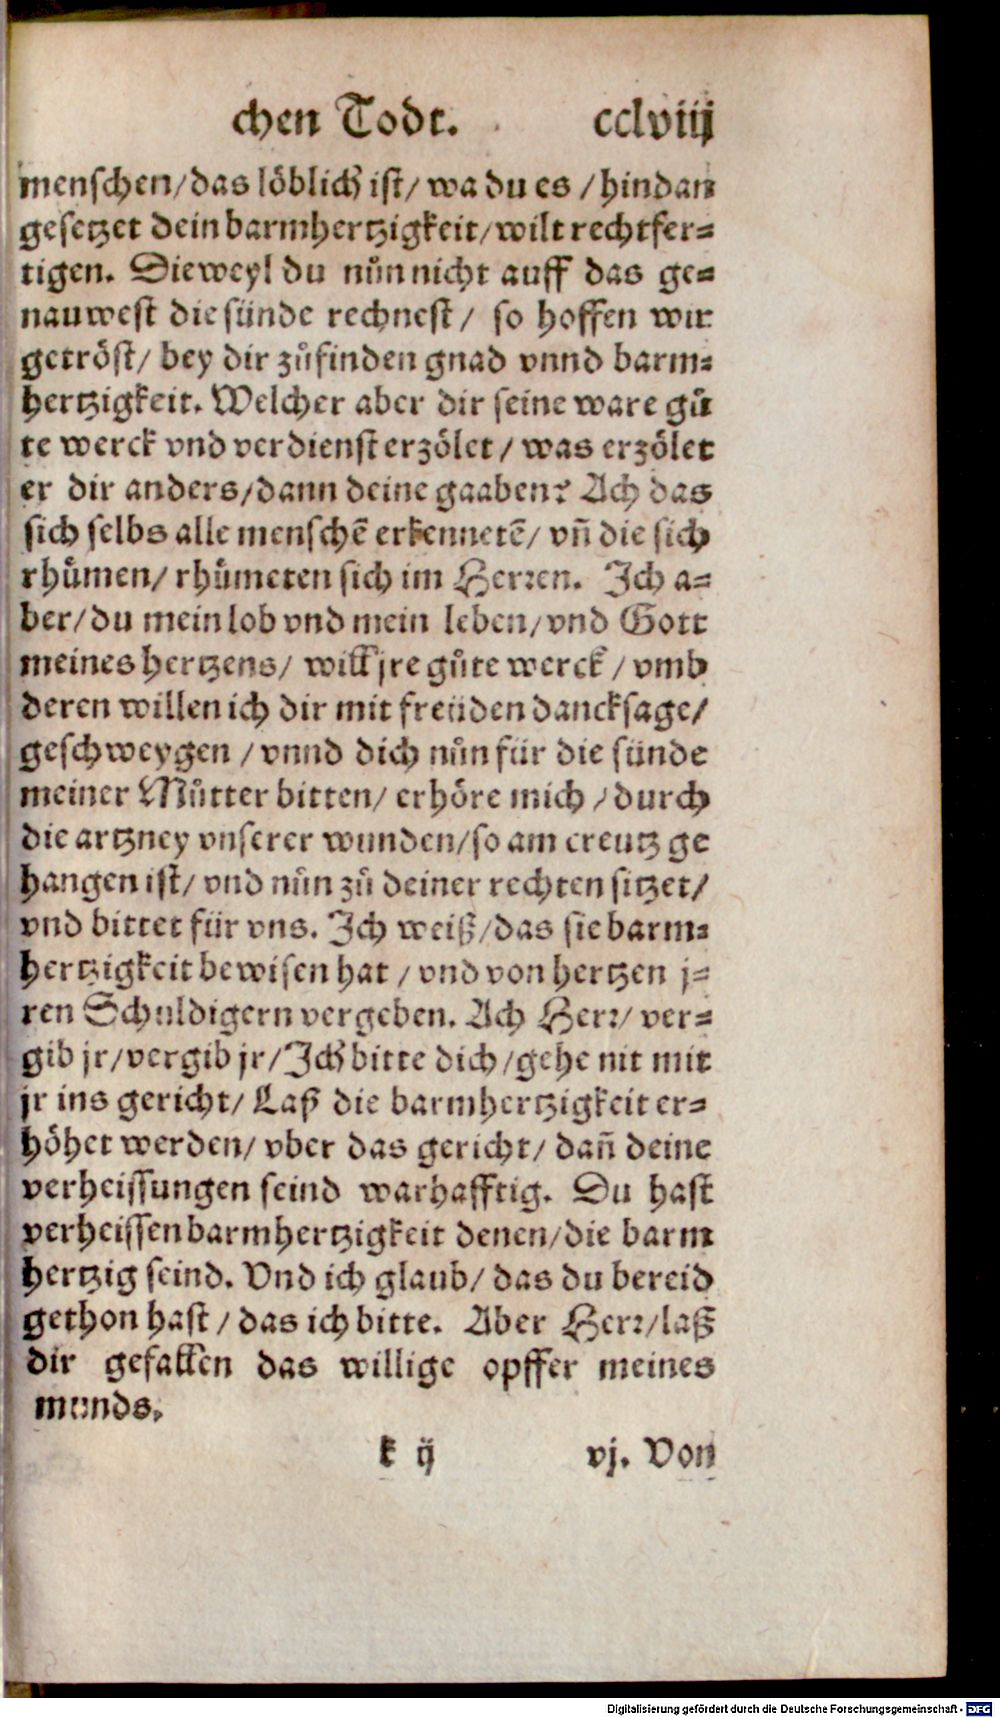 chen Todt. cclviij
menschen/das löblich ist/ wa du es /hindan
gesetzet dein barmhertzigkeit/wilt rechtfer⸗
tigen. Dieweyl du nůn nicht auff das ge⸗
nauwest die sünde rechnest/ so hoffen wir
getröst/ bey dir zůfinden gnad vnnd barm⸗
hertzigkeit. Welcher aber dir seine ware gů
te werck vnd verdienst erzölet/ was erzölet
er dir anders/dann deine gaaben? Ach das
sich selbs alle menschē erkennetē/ vñ die sich
rhůmen/ rhůmeten sich im Herren. Ich a⸗
ber/du mein lob vnd mein leben/vnd Gott
meines hertzens/ will jre gůte werck/ vmb
deren willen ich dir mit freüden dancksage/
geschweygen /vnnd dich nůn für die sünde
meiner Můtter bitten/ erhöre mich /durch
die artzney vnserer wunden/so am creutz ge
hangen ist/ vnd nůn zů deiner rechten sitzet/
vnd bittet für vns. Ich weiß/das sie barm⸗
hertzigkeit bewisen hat /vnd von hertzen j⸗
ren Schuldigern vergeben. Ach Herr/ ver⸗
gib jr/vergib jr/Ich bitte dich/gehe nit mit
jr ins gericht/ Laß die barmhertzigkeit er⸗
höhet werden/ vber das gericht/ dañ deine
verheissungen seind warhafftig. Du hast
verheissen barmhertzigkeit denen/die barm
hertzig seind. Vnd ich glaub/ das du bereid
gethon hast/ das ich bitte. Aber Herr/laß
dir gefallen das willige opffer meines
munds.
k ij vj. Von
Digitalisierung gefördert durch die Deutsche Forschungsgemeinschaft - DFG